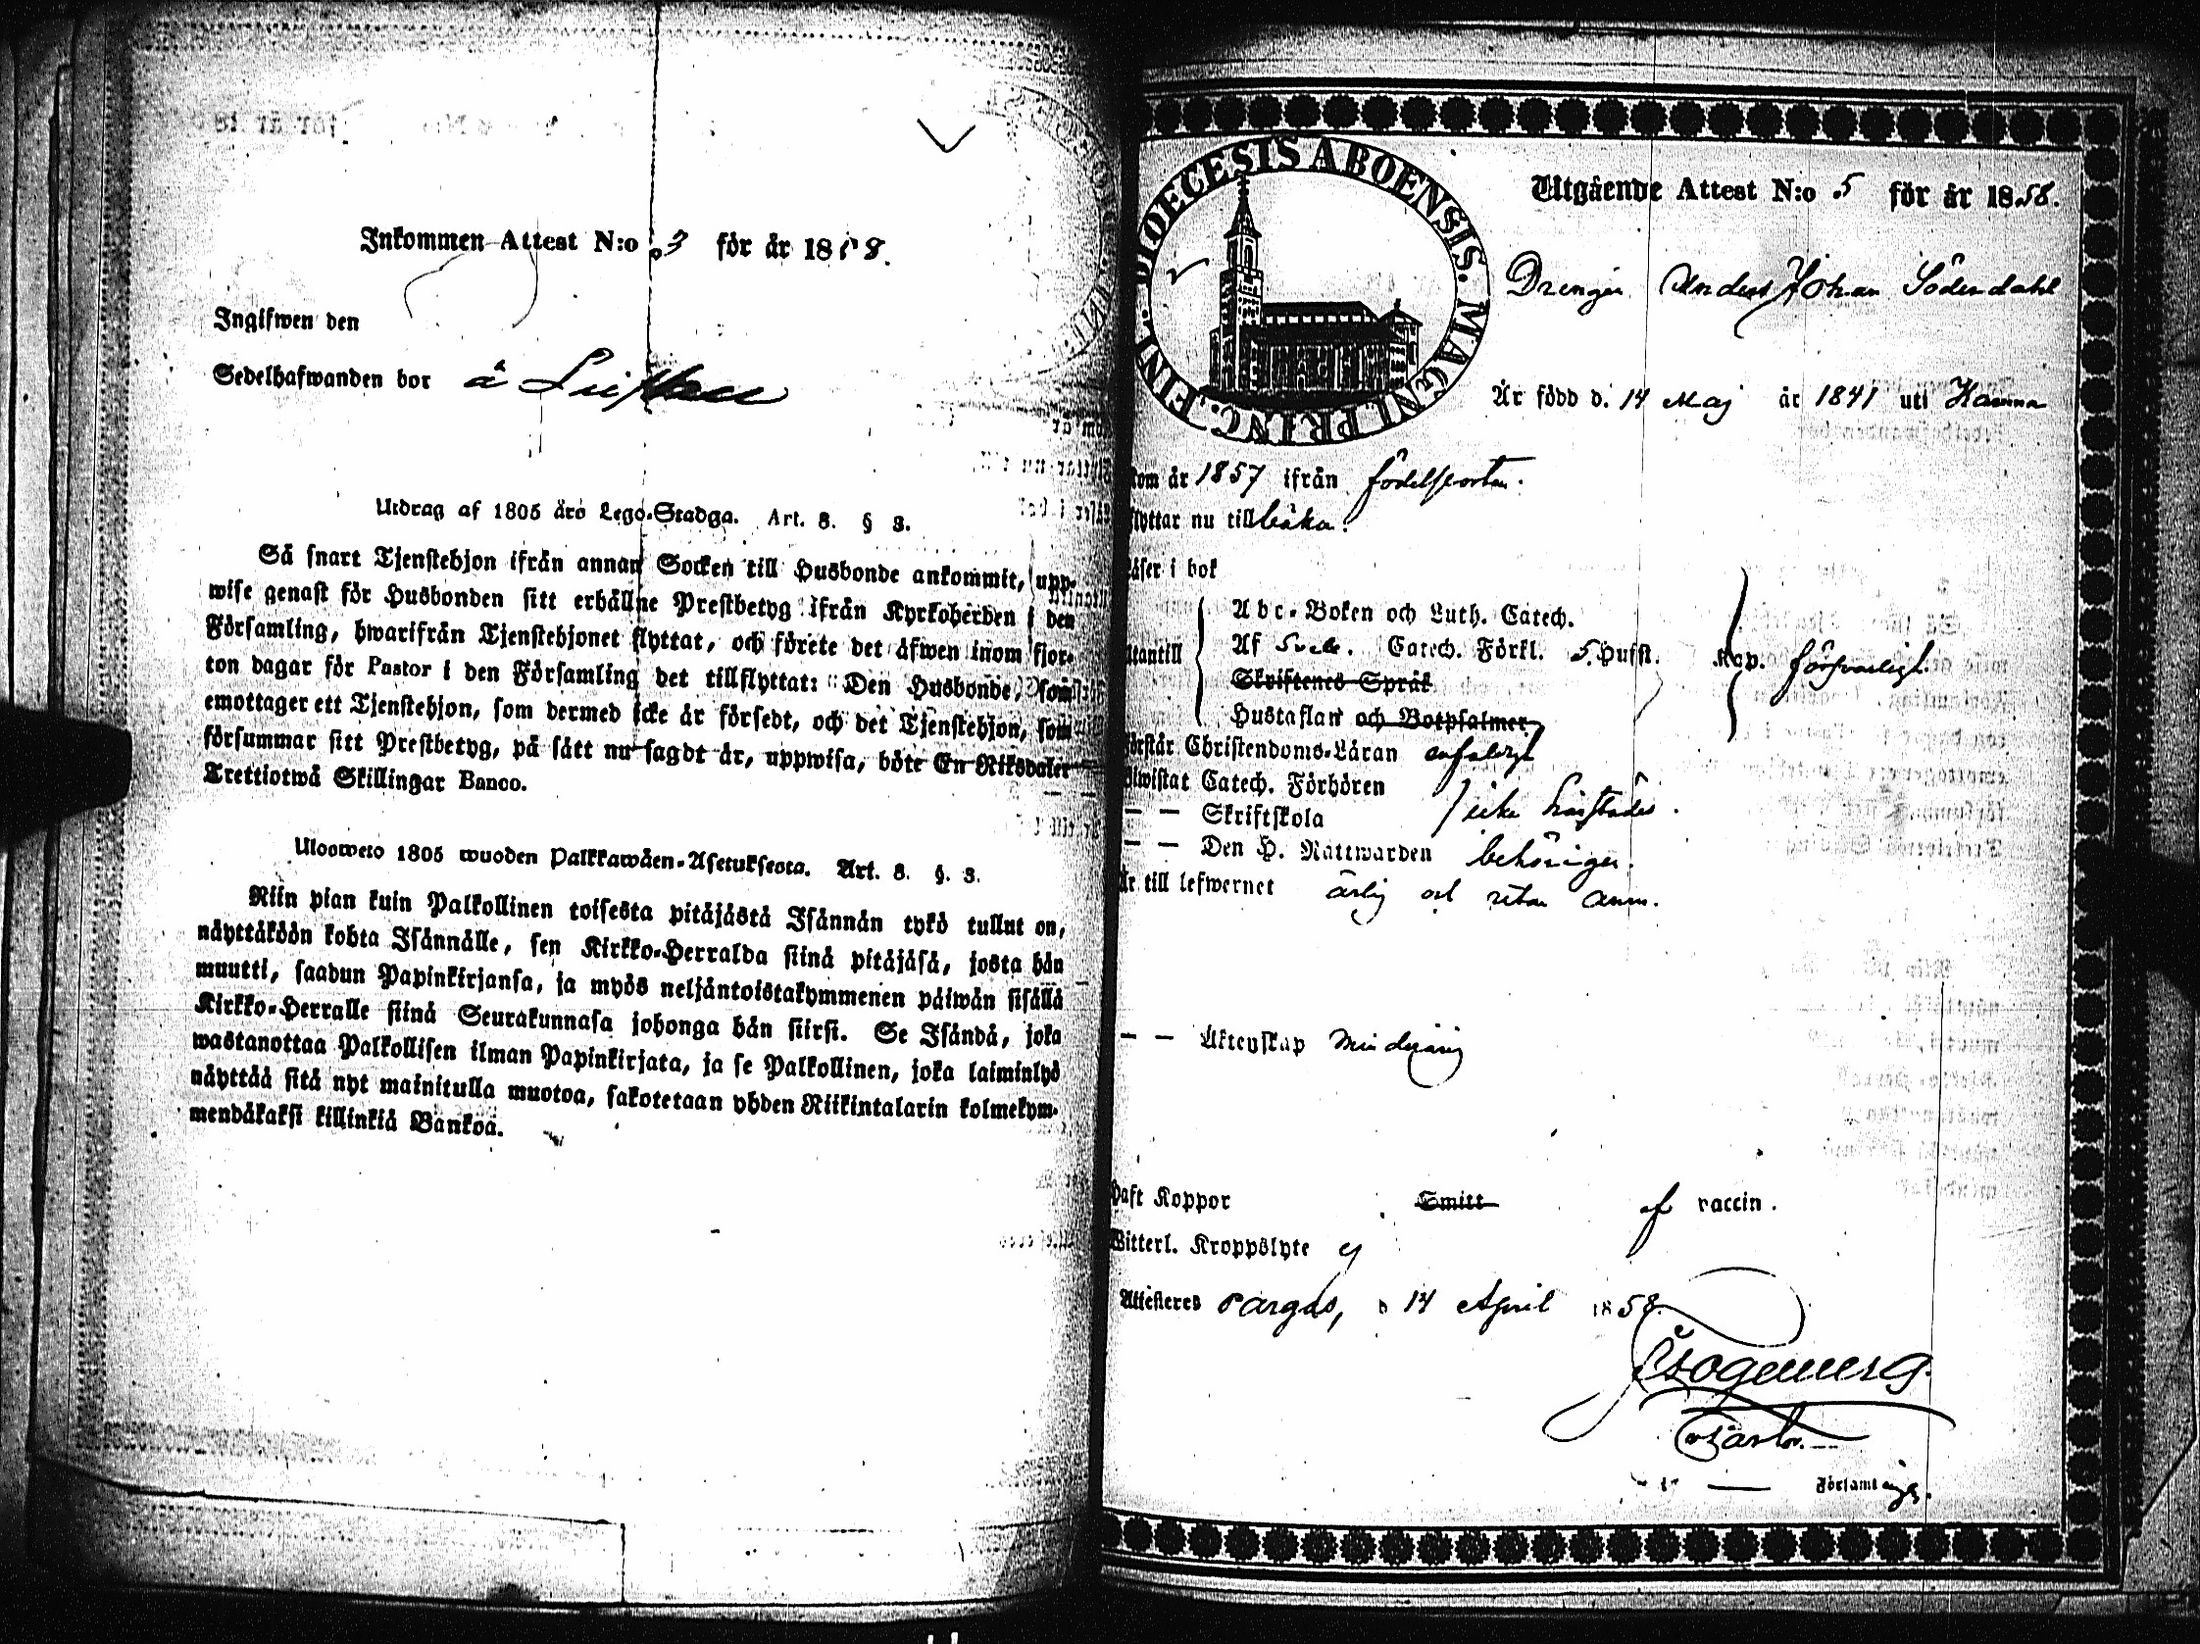 Inkommen Attest N:o 3 för år 1858.
Ingifwen den
Sedelhafwanden bor å
Utdrag af 1805 års Lego-Stadga. Art. 8. § 3.
Så snart Tjenstehjon ifrån annan Socken till Husbonde ankommit, upp-
wise genast för Husbonden sitt erhållne Prestbetyg ifrån Kyrkoherden i den
Församling, hwarifrån Tjenstehjonet flyttat, och förete det äfwen inom fjor-
ton dagar för Pastor i den Församling det tillflyttat: Den Husbonde, som
emottager ett Tjenstehjon, som dermed icke är försedt, och det Tjenstehjon, som
försummar sitt Prestbetyg, på sätt nu sagdt är, uppwisa, böte En Riksdaler
Trettiotwå Skillingar Banco.
Ulosweto 1805 wuoden Palkkawäen-Asetuksesta. Art. 8. §. 3.
Niin pian kuin Palkollinen toisesta pitäjästä Isännän tykö tullut on,
näyttäköön kohta Isännälle, sen Kirkko-Herralda siinä pitäjäsä, josta hän
muutti, saadun Papinkirjansa, ja myös neljäntoistakymmenen päiwän sisällä
Kirkko-Herralle siinä Seurakunnasa johonga hän siirsi. Se Isändä, joka
wastanottaa Palkollisen ilman Papinkirjata, ja se Palkollinen, joka laiminlyö
näyttää sitä nyt mainitulla muotoa, sakotetaan yhden Riikintalarin kolmekym-
mendäkaksi killinkiä Bankoa.
DIOECESIS ABOENSIS. MAGNI PRINC. FINL.
Utgående Attest N:o 5 för år 1858.
Drengen Anders Johan Söderdahl
Är född d. 14 Maj år 1841 uti
kom år 1857 ifrån födelseorten.
flyttar nu tillbaka.
Läser i bok
Abc-Boken och Luth. Catech.
utantill Af Sveb. Catech. Förkl. 5. Husst. Kap. försvarligt
Skriftenes Språk
Hustaflan och Botpsalmer
Förstår Christendoms-Läran enfaldigt
Biwistat Catech. Förhören
— — Skriftskola icke
— — Den H. Nattwarden behörigen.
Är till lefwernet ärlig och utan anm.
— — Äktenskap Minderårig
Haft Koppor Smitt af vaccin.
Witterl. Kroppslyte ej
Attesteras Pargas, d 14 April 1858.
Pastor.
Församlings.